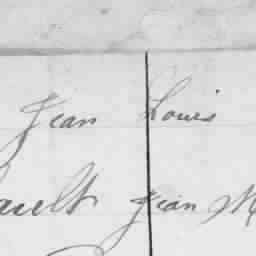 Jean Louis
ault Jean M